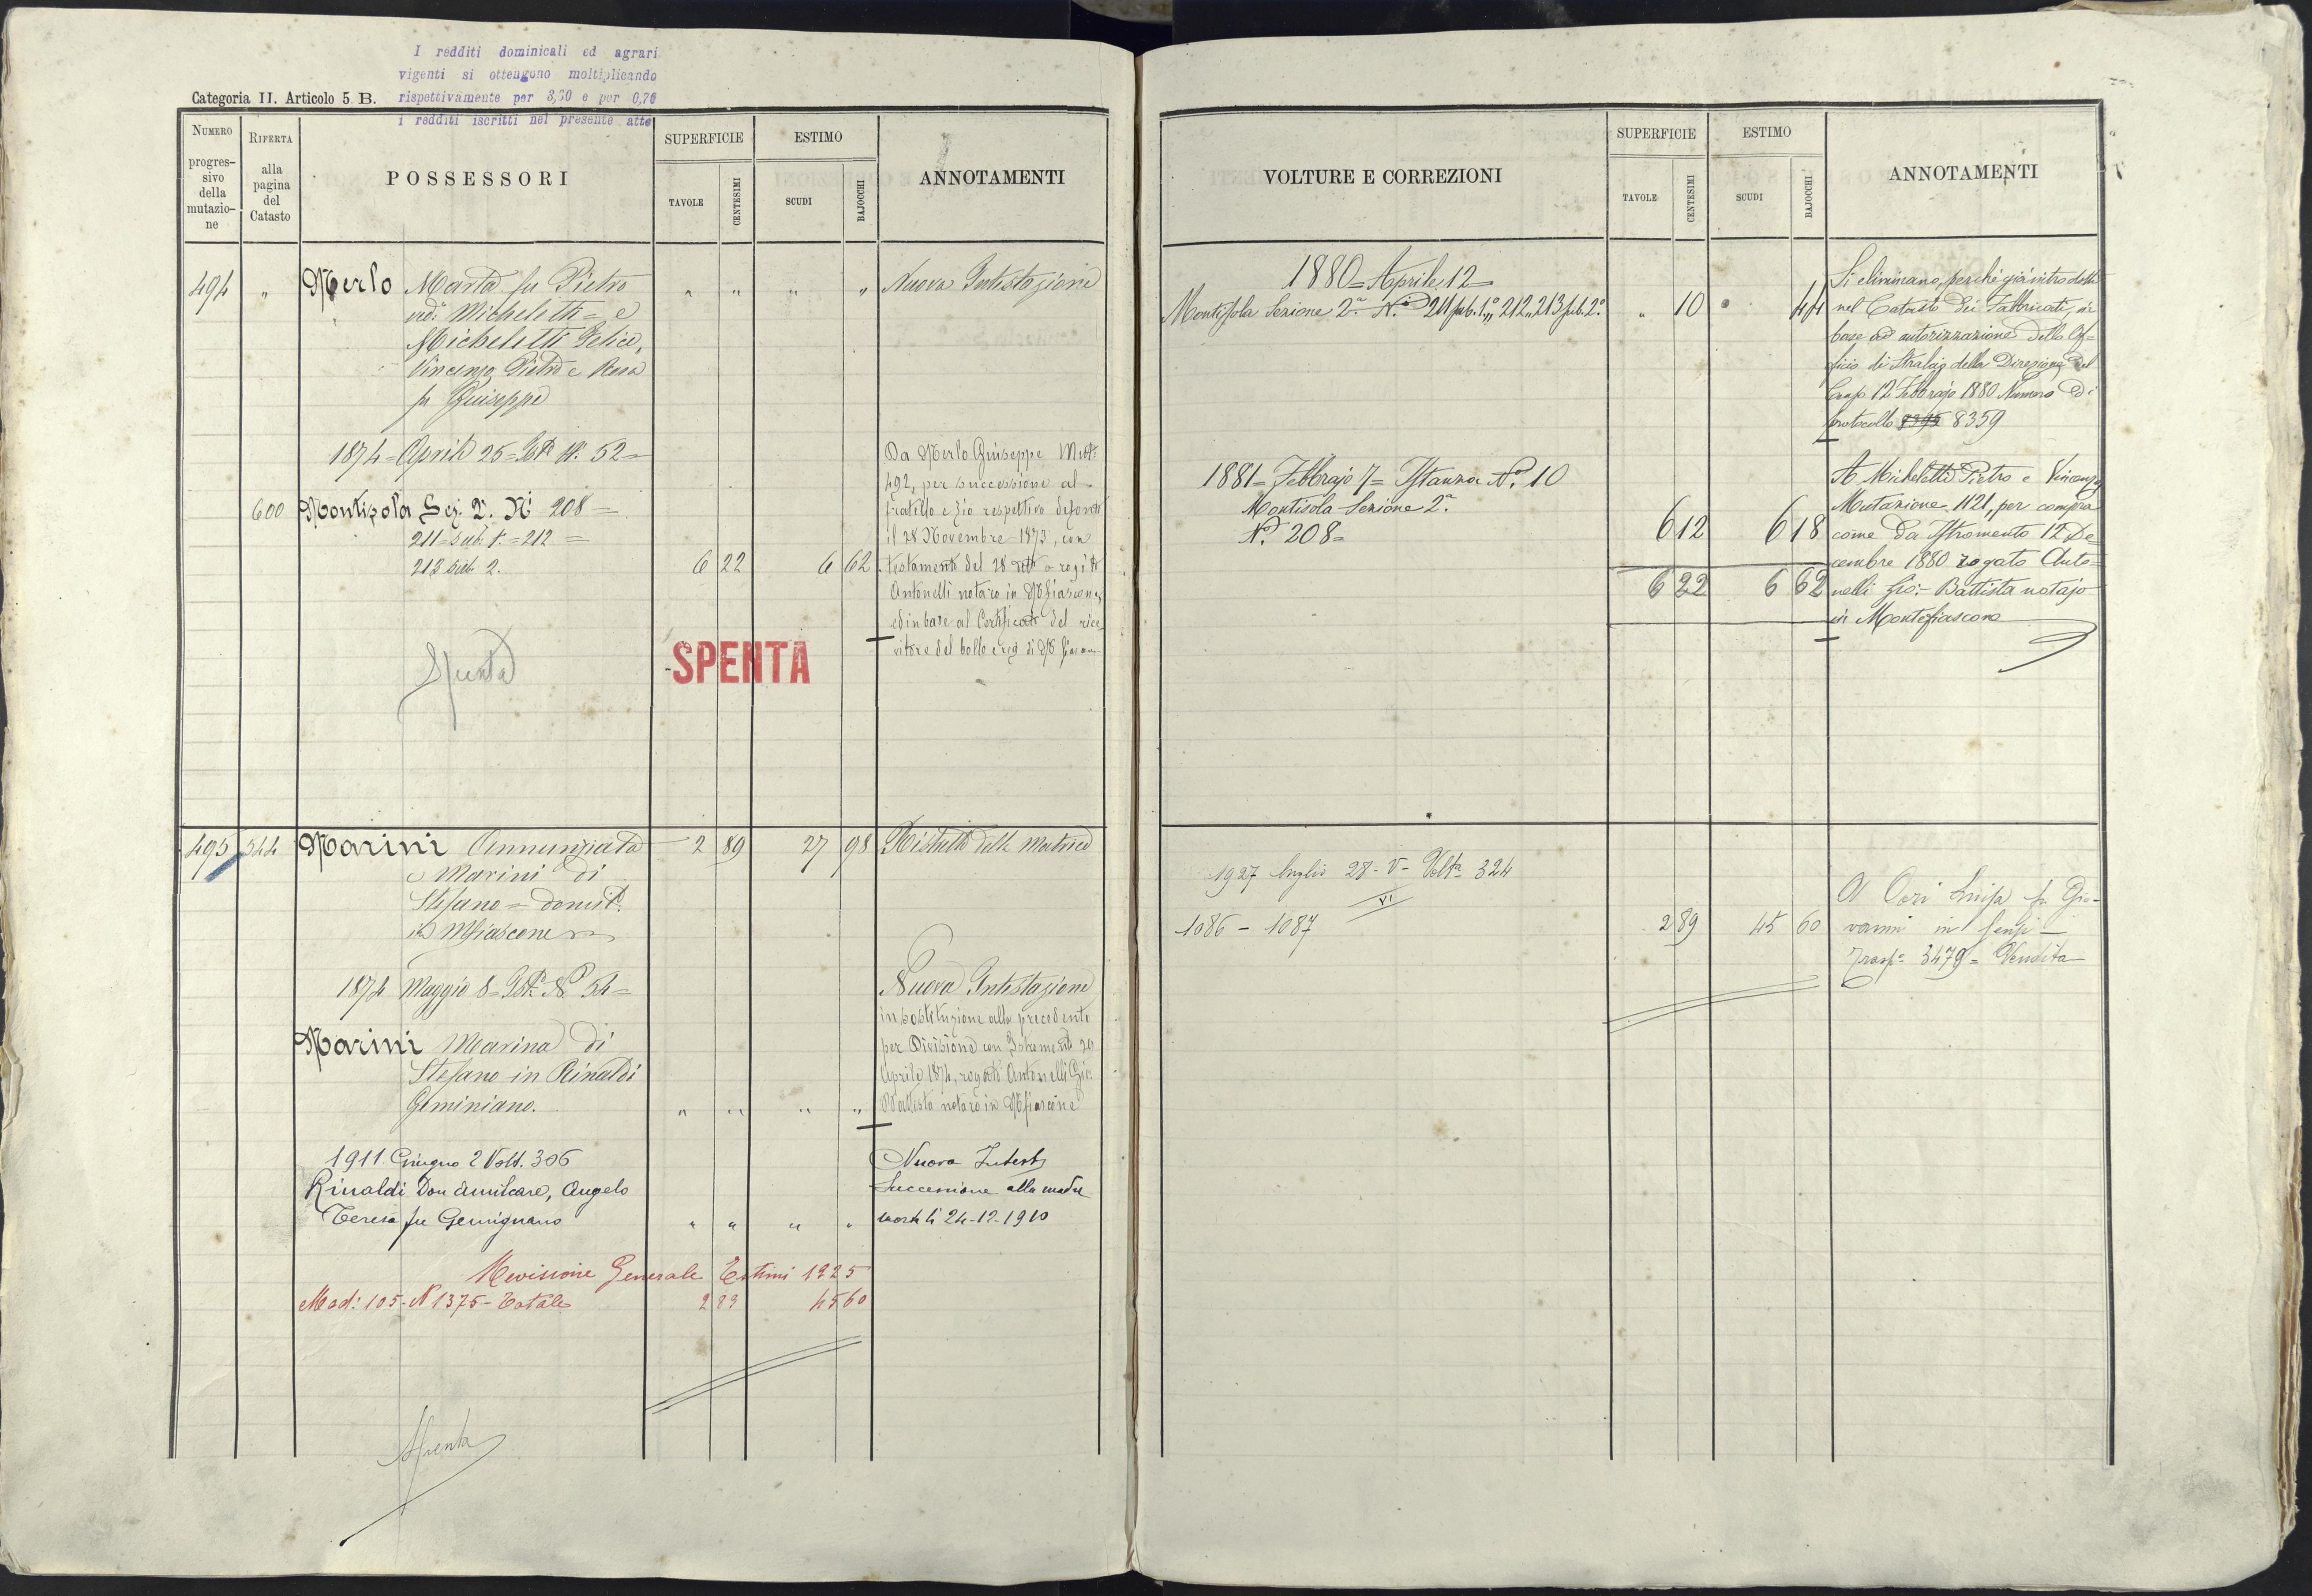 I redditi dominicali ed agrari
vigenti si ottengono moltiplicando
rispettivamente per 3,30 e per 0,70
i redditi iscritti nel presente atto
Categoria II. Articolo 5. B.
NUMERO progres- sivo della mutazio- ne
RIFERTA alla pagina del Catasto
POSSESSORI
SUPERFICIE
TAVOLE
CENTESIMI
ESTIMO
SCUDI
BAJOCCHI
ANNOTAMENTI
494 " Merlo Marta fu Pietro " " " " Nuova Intestazione
ved: Micheletti = e
Micheletti Felice,
Vincenzo Pietro e Rosa
fu Giuseppe
1874 = Aprile 25 = N. 52 =
600 Montisola Sez. 2. Ni 208 =
211 = sub. 1. = 212 =
213 sub. 2. 6 22 6 62
Da Merlo Giuseppe Mut:
492, per successione al
fratello e zio respettivo defonto
il 28 Novembre 1873, con
testamento del 28 a rogito
Antonelli notaro in Mfiascone
ed in base al Certificato del rice-
vitore del bollo e reg di
Spenta
SPENTA
495 544 Marini Annunziata 2 89 27 98
e Marini di
Stefano = domic.
in Mfiascone
1874 Maggio 8 = N. 54 =
Marini Marina di
Stefano in Rinaldi
Geminiano. " " " "
Nuova Intestazione
in sostituzione alla precedente
per Divisione con Istromento 20
Aprile 1874, rogato Antonelli Gio:
Battista notaro in Mfiascone
1911 Giugno 2 Volt. 306
Rinaldi Don Amilcare, Angelo
Teresa fu Gemignano " " " "
Nuova Intest
Successione alla madre
morta li 24-12-1910
Revisione Generale Estimi 1925
Mod: 105. N 1375 - Totale 2 89 45 60
Spenta
VOLTURE E CORREZIONI
SUPERFICIE
TAVOLE
CENTESIMI
ESTIMO
SCUDI
BAJOCCHI
ANNOTAMENTI
1880 = Aprile 12 =
Montisola Sezione 2a Ni 211 sub. 1o, 212, 213 sub. 2o. " 10 " 44
Si eliminano, perchè già introdotti
nel Catasto dei Fabbricati, in
base ad autorizzazione dello Uf=
ficio di Stralcio della Direzione del
12 Febbrajo 1880 Numero di
protocollo 8359
1881 = Febbrajo 7 = Istanza No. 10
Montisola Sezione 2a.
No. 208 = 6 12 6 18
6 22 6 62
A Micheletti Pietro e Vincenzo
Mutazione 1121, per compra
come da Istromento 12 De=
cembre 1880 rogato Anto=
nelli Gio: Battista notajo
in Montefiascone
1927 luglio 28 - V - Volta 324
VI
1086 - 1087 2 89 45 60
A Cori Luisa fu Gio-
vanni in
3479 = Vendita